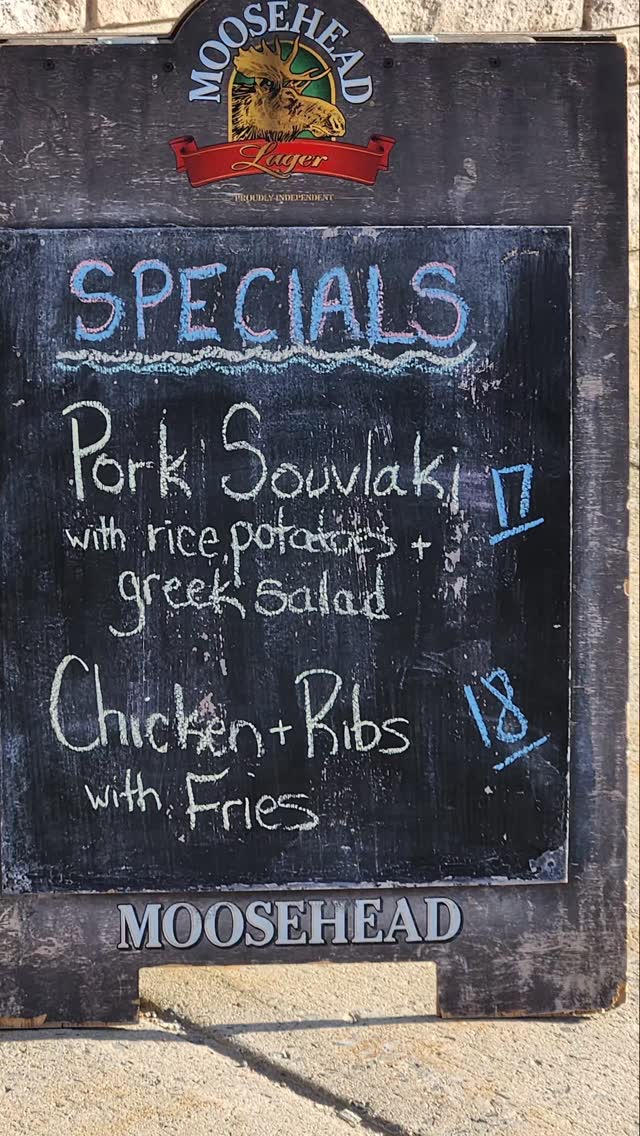 MOOSEHEAD
Lager
PROUDLY INDEPENDENT
SPECIALS
Pork Souvlaki 17
with rice, potatoes +
greek salad
Chicken + Ribs 18
with Fries
MOOSEHEAD